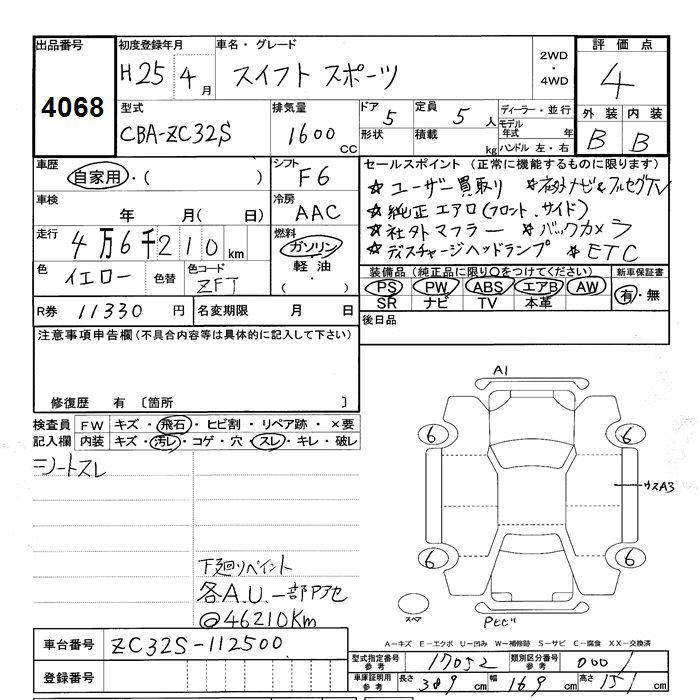 出品番号 初度登録年月 車名・グレード 2WD・4WD 評価点
4068 H25 4月 スイフト スポーツ 4
型式 排気量 ドア 5 定員 5人 ディーラー・並行 外装 内装
CBA-ZC32S 1600cc 形状 積載 kg モデル年式 年 ハンドル 左・右 B B
車歴 自家用・( ) シフト F6 セールスポイント (正常に機能するものに限ります)
☆ ユーザー買取り ☆社外ナビ&フルセグTV
車検 年 月( 日) 冷房 AAC ☆純正エアロ(フロント、サイド)
☆社外マフラー ☆バックカメラ
走行 4万6千210km 燃料 ガソリン・軽油・( ) ☆ディスチャージヘッドランプ ☆ETC
色 イエロー 色替 色コード ZFT 装備品 (純正品に限り○をつけてください) 新車保証書
PS PW ABS エアB AW 有・無
SR ナビ TV 本革
R券 11330円 名変期限 月 日 後日品
注意事項申告欄(不具合内容等は具体的に記入して下さい)
修復歴 有 〔箇所 〕
検査員記入欄 FW キズ・飛石・ヒビ割・リペア跡・×要
内装 キズ・汚レ・コゲ・穴・スレ・キレ・破レ
シートスレ
A1
6 6
ウスA3
6 6
下廻りペイント
各A.U.一部Pアセ
@46210Km
スペア
Pとビ
A-キズ E-エクボ U-凹み W-補修跡 S-サビ C-腐食 XX-交換済
車台番号 ZC32S-112500
型式指定番号参考 17052 類別区分番号参考 0001
登録番号
車庫証明用参考 長さ 389cm 幅 169cm 高さ 151cm